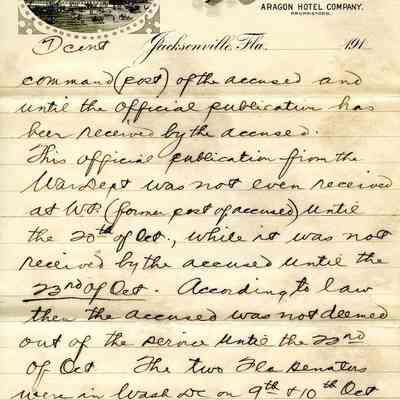 ARAGON HOTEL COMPANY.
PROPRIETORS.
Jacksonville, Fla. 191
command (post) of the accused and
until the official publication has
been received by the accused.
This official publication from the
War Dept was not even received
at WP. (former post of accused) until
the 20th of Oct., while it was not
received by the accused until the
23rd of Oct. According to law
then the accused was not deemed
out of the service until the 23rd
of Oct The two Fla senators
were in Wash DC on 9th & 10th Oct